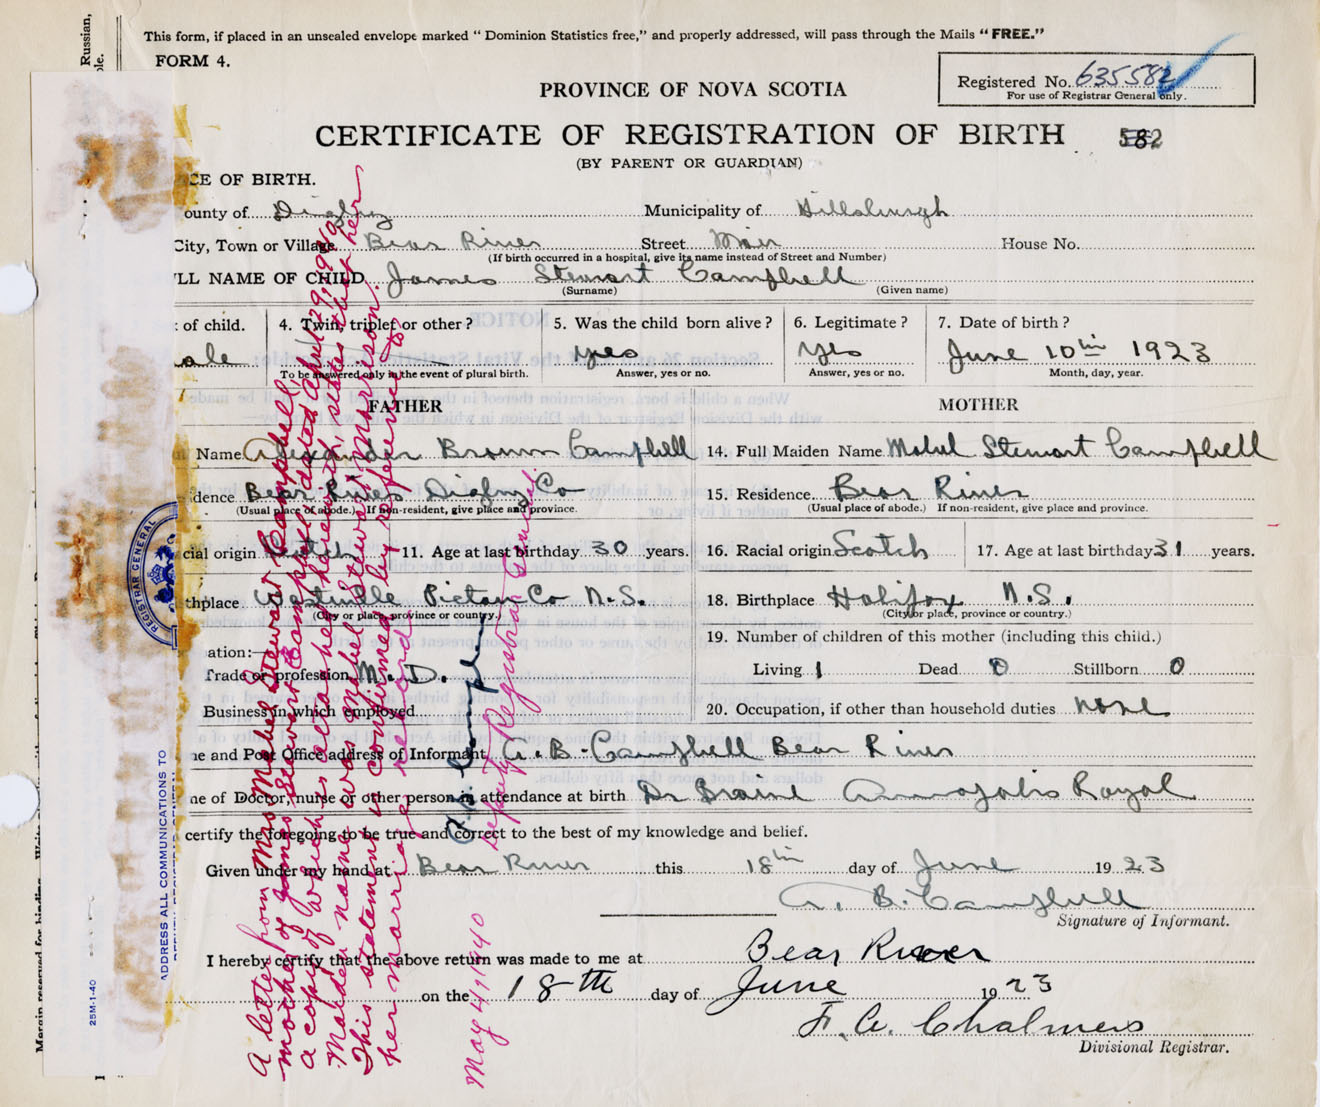 Russian,
ple.
This form, if placed in an unsealed envelope marked “ Dominion Statistics free,” and properly addressed, will pass through the Mails “ FREE.”
FORM 4.
Registered No. 635582
For use of Registrar General only.
PROVINCE OF NOVA SCOTIA
CERTIFICATE OF REGISTRATION OF BIRTH 582
(BY PARENT OR GUARDIAN)
CE OF BIRTH.
ounty of Digby Municipality of Hillsburgh
City, Town or Village Bear River Street Main House No.
(If birth occurred in a hospital, give its name instead of Street and Number)
LL NAME OF CHILD James Stewart Campbell
(Surname) (Given name)
of child. 4. Twin, triplet or other ? 5. Was the child born alive ? 6. Legitimate ? 7. Date of birth ?
ale yes yes June 10th 1923
To be answered only in the event of plural birth. Answer, yes or no. Answer, yes or no. Month, day, year.
FATHER MOTHER
Name Alexander Brown Campbell 14. Full Maiden Name Mabel Stewart Campbell
dence Bear River Digby Co 15. Residence Bear River
(Usual place of abode.) If non-resident, give place and province. (Usual place of abode.) If non-resident, give place and province.
cial origin Scotch 11. Age at last birthday 30 years. 16. Racial origin Scotch 17. Age at last birthday 31 years.
thplace Westville Pictou Co N.S. 18. Birthplace Halifax N.S.
(City or place, province or country.) (City or place, province or country.)
19. Number of children of this mother (including this child.)
ation:—
Trade or profession M.D. Living 1 Dead 0 Stillborn 0
Business in which employed 20. Occupation, if other than household duties None
ne and Post Office address of Informant A.B. Campbell Bear River
ne of Doctor, nurse or other person in attendance at birth Dr Braine Annapolis Royal
certify the foregoing to be true and correct to the best of my knowledge and belief.
Given under my hand at Bear River this 18th day of June 1923
A. B. Campbell
Signature of Informant.
I hereby certify that the above return was made to me at Bear River
on the 18th day of June 1923
F. A. Chalmers
Divisional Registrar.
A letter from Mrs Mabel Stewart Campbell,
mother of James Stewart Campbell dated April 29, 1940
a copy of which is attached herewith, states that her
Maiden name was Mabel Stewart Morrison.
This statement is confirmed by reference to
her marriage record
Campbell
Deputy Registrar General
May 4, 1940
REGISTRAR GENERAL
ADDRESS ALL COMMUNICATIONS TO
DEPUTY REGISTRAR GENERAL
25M-1-40
Margin reserved for binding.